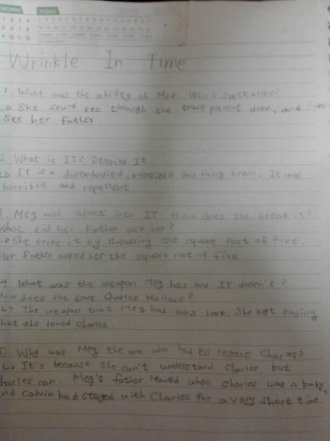 Wrinkle In Time
1. What was the ability of Mrs. Who's spectacles?
She could see through the transparent door, and
see her father.
2. What is IT? Describe IT
IT is a disembodied, oversized living brain. It was
horrible and repellent.
Meg was almost into IT. How does she break it?
What did her father ask her?
She broke it by answering the square root of five.
Her father asked her the square root of five.
4. What was the weapon Meg has and IT doesn't?
How does she save Charles Wallace?
The weapon that Meg had was love. She kept saying
that she loved Charles.
5. Why was Meg the one who had to rescue Charles?
It's because she can't understand Charles but
Charles can. Meg's father leaved when Charles was a baby,
and Calvin had stayed with Charles for a very short time.